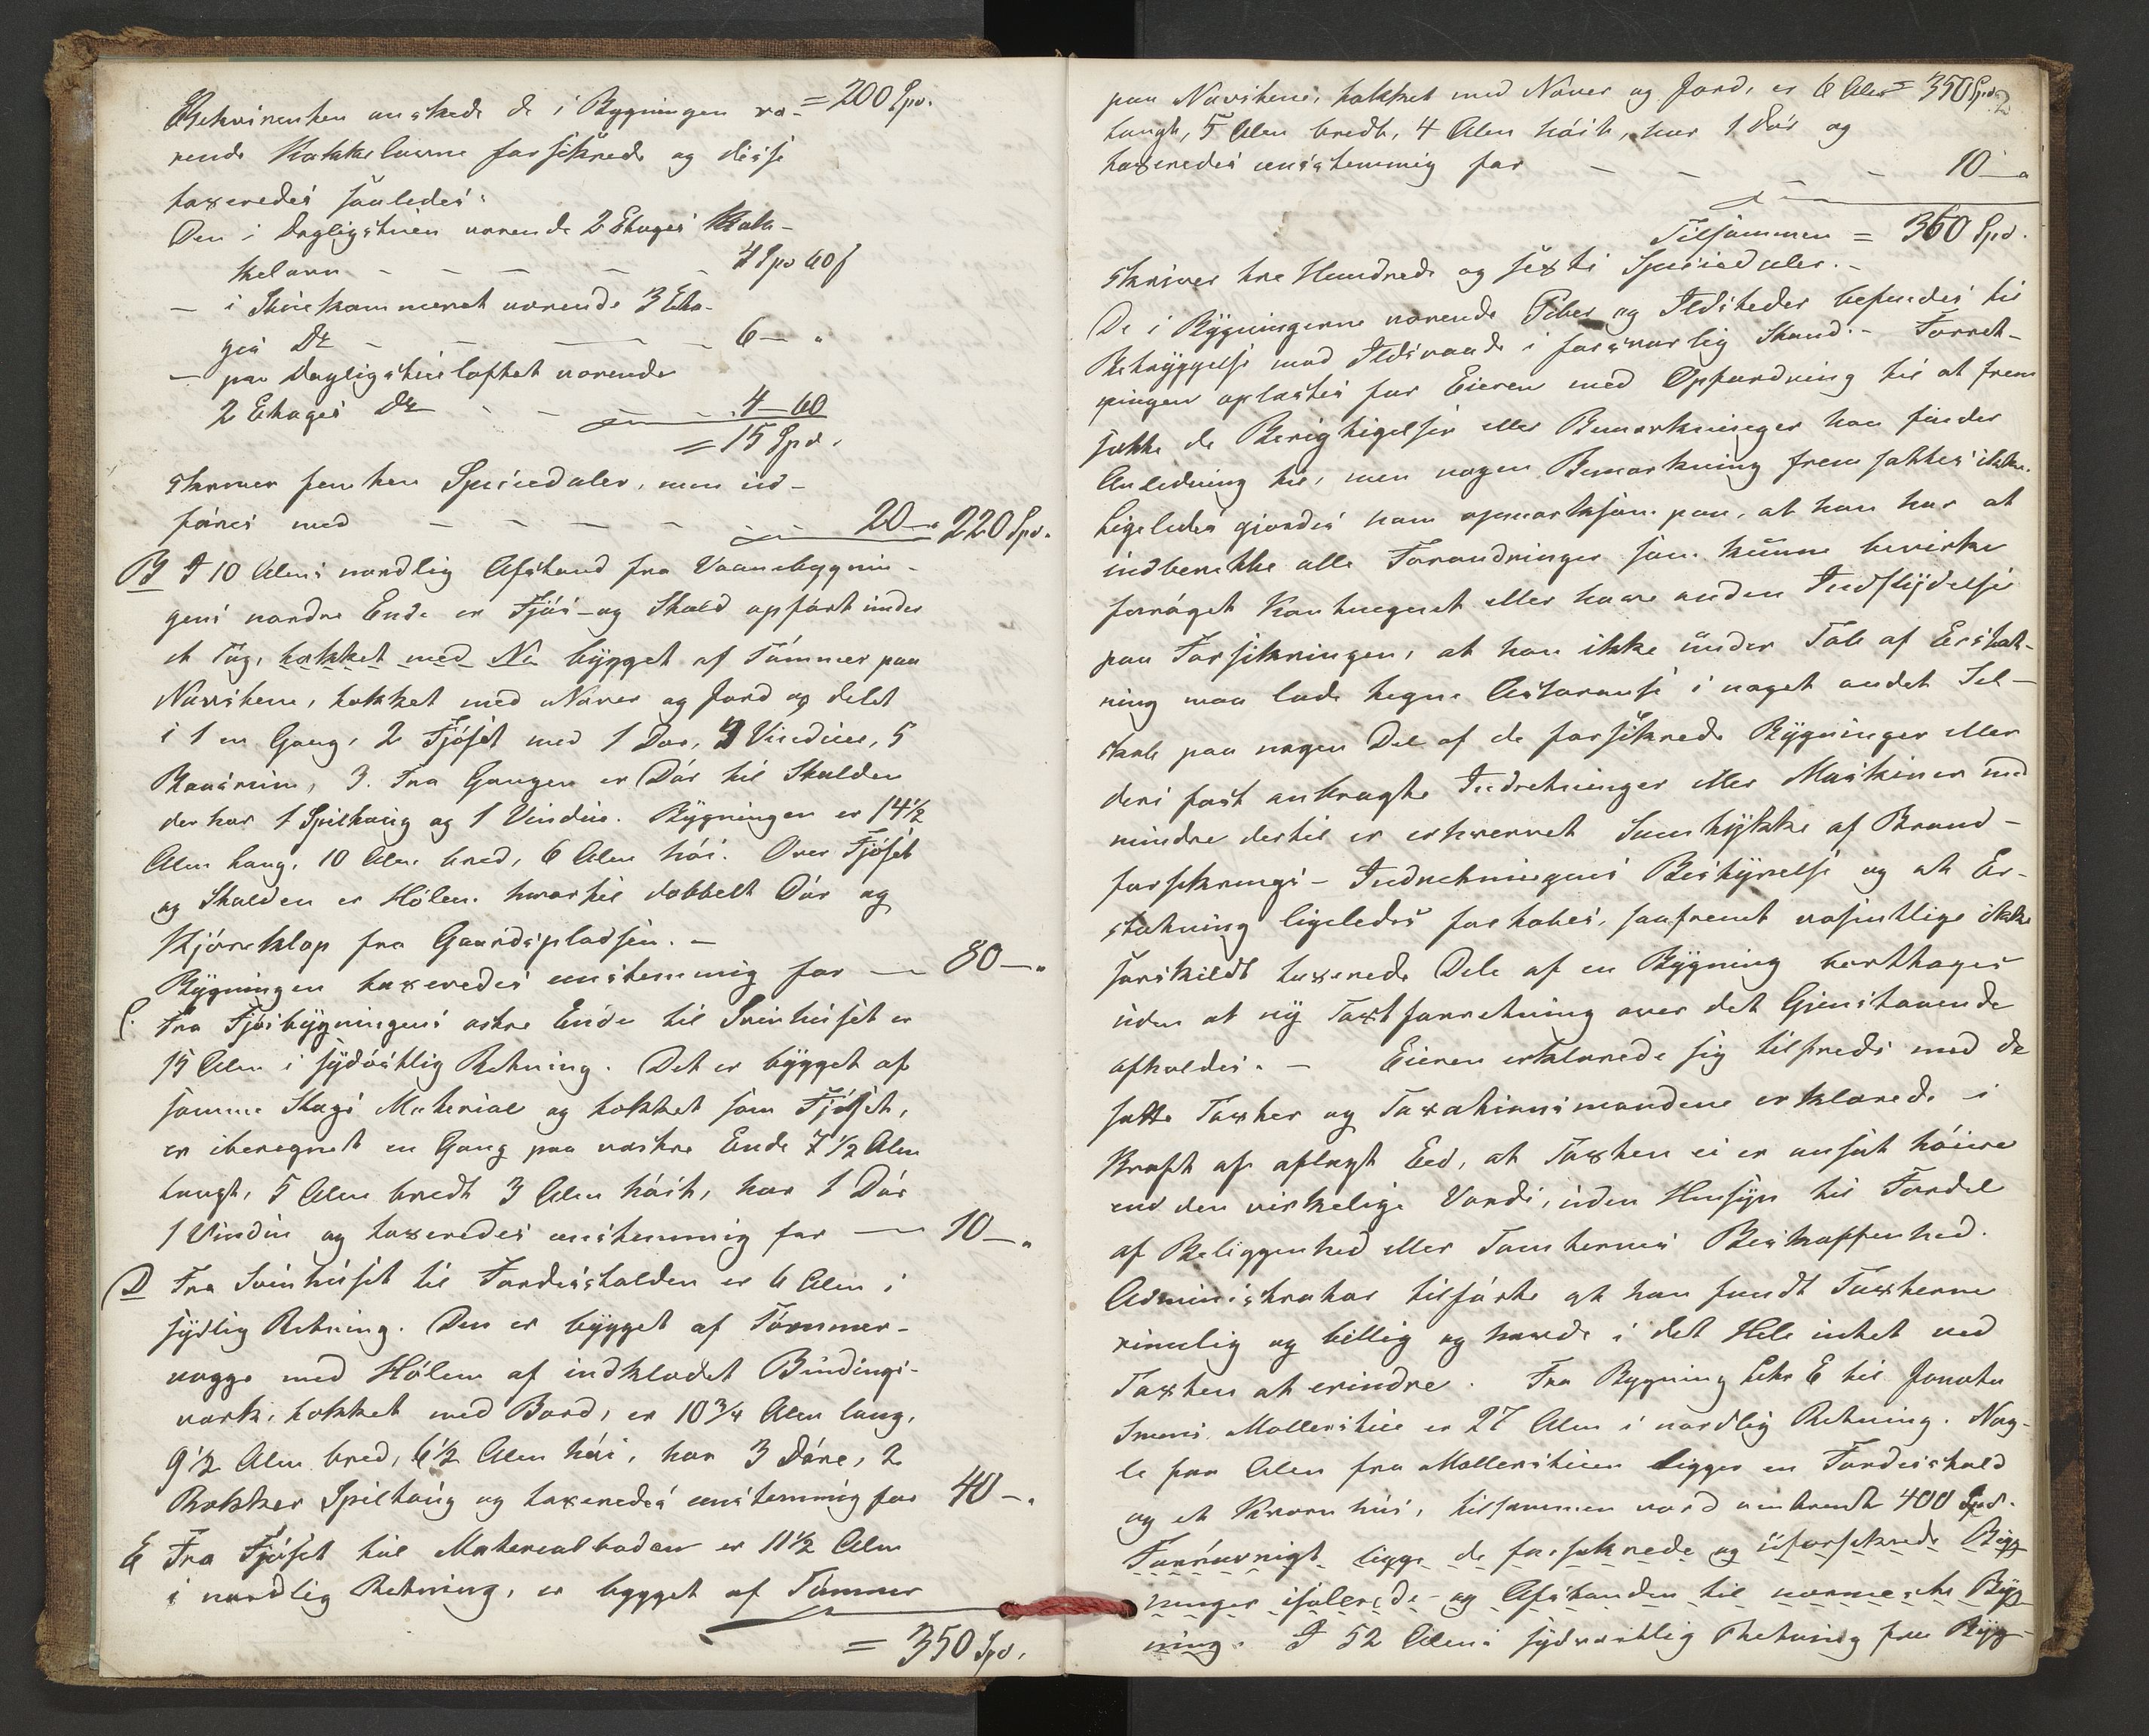 Rekvirenten ønskede de i Bygningen væ- = 200 Spd.
rende Kakkelovne forsikrede og disse
taxeredes saaledes:
Den i Dagligstuen værende 2 Etages Kak-
kelovn - - - - - 4 Spd 60 ſ
— i Stuekammeret værende 3 Eta-
ges Do - - - - - 6 — "
— paa Dagligstueloftet værende
2 Etages Do - - - 4 — 60
= 15 Spd.
skriver femten Speciedaler, men ud-
føres med - - - - - 20 — " 220 Spd.
B I 10 Alens nordlig Afstand fra Vaanebygnin-
gens nordre Ende er Fjøs- og Skald opført under
et Tag, tækket med Næ bygget af Tømmer paa
Navstene, tækket med Næver og Jord og delet
i 1 en Gang, 2 Fjøset med 1 Dør, 3 Vinduer, 5
Baasrum, 3. Fra Gangen er Dør til Skalden
der har 1 Spiltoug og 1 Vindue. Bygningen er 14½
Alen lang, 10 Alen bred, 6 Alen høi. Over Fjøset
og Skalden er Hölem hvortil dobbelt Dør og
Kjøreklop fra Gaardspladsen. —
Bygningen taxeredes enstemmig for — 80 — "
C. Fra Fjøsbygningens østre Ende til Svinhuset er
15 Alen i sydøstlig Retning. Det er bygget af
samme Slags Material og tækket som Fjøset,
er iberegnet en Gang paa vestre Ende 7½ Alen
langt, 5 Alen bredt 3 Alen høit, har 1 Dør
1 Vindue og taxeredes enstemmig for — 10 — "
D Fra Svinhuset til Fordeistalden er 6 Alen i
sydlig Retning. Den er bygget af Tømmer-
vægge med Hölem af indklædet Bindings-
værk, tækket med Bord, er 10¾ Alen lang,
9½ Alen bred, 6½ Alen høi, har 3 Døre, 2
Rækker Spiltoug og taxeredes enstemmig for 40 — "
E Fra Fjøset til Materialboden er 11½ Alen
i nordlig Retning, er bygget af Tømmer
= 350 Spd.
paa Navstene, tækket med Næver og Jord, er 6 Alen = 350 Spd. 2
langt, 5 Alen bredt, 4 Alen høit, har 1 Dør og
taxeredes enstemmig for - - - - 10 — "
Tilsammen = 360 Spd.
skriver tre Hundrede og sexti Speciedaler. —
De i Bygningerne værende Piber og Ildsteder befandtes til
Betryggelse mod Ildsvaade i forsvarlig Stand. — Forret-
ningen oplæstes for Eieren med Opfordring til at frem
sætte de Berigtigelser eller Bemærkninger han finder
Anledning til, men nogen Bemærkning fremsattes ikke.
Ligeledes gjordes ham opmærksom paa, at han har at
indberette alle Forandringer som kunne bevirke
forøget Kontingent eller have anden Indflydelse
paa Forsikringen, at han ikke under Tab af Erstat-
ning maa lade tegne Assurance i noget andet Sel-
skab paa nogen Del af de forsikrede Bygninger eller
deri fast anbragte Indretninger eller Maskiner med
mindre dertil er erhvervet Samtykke af Brand-
forsikrings-Indretningens Bestyrelse og at Er-
statning ligeledes fortabes, saafremt væsentlige ikke
særskildt taxerede Dele af en Bygning borttages
uden at ny Taxtforretning over det Gjenstaaende
afholdes. — Eieren erklærede sig tilfreds med de
satte Taxter og Taxationsmændene erklærede i
Kraft af aflagt Eed, at Taxten ei er ansat høiere
end den virkelige Værdi, uden Hensyn til Fordel
af Beliggenhed eller Tomternes Beskaffenhed.
Administrator tilførte at han fandt Taxterne
rimelig og billig og havde i det Hele intet ved
Taxten at erindre. Fra Bygning Litr. E til Jonata
Møllerstue er 27 Alen i nordlig Retning. Nog-
le faa Alen fra Møllerstuen ligger en Fordeistald
og et Kværnhus, tilsammen værd omtrendt 400 Spd.
Forøvrigt ligge de forsikrede og uforsikrede Byg-
ninger isolerede og Afstanden til nærmeste Byg-
ning. I 52 Alens sydvestlig Retning fra Byg-